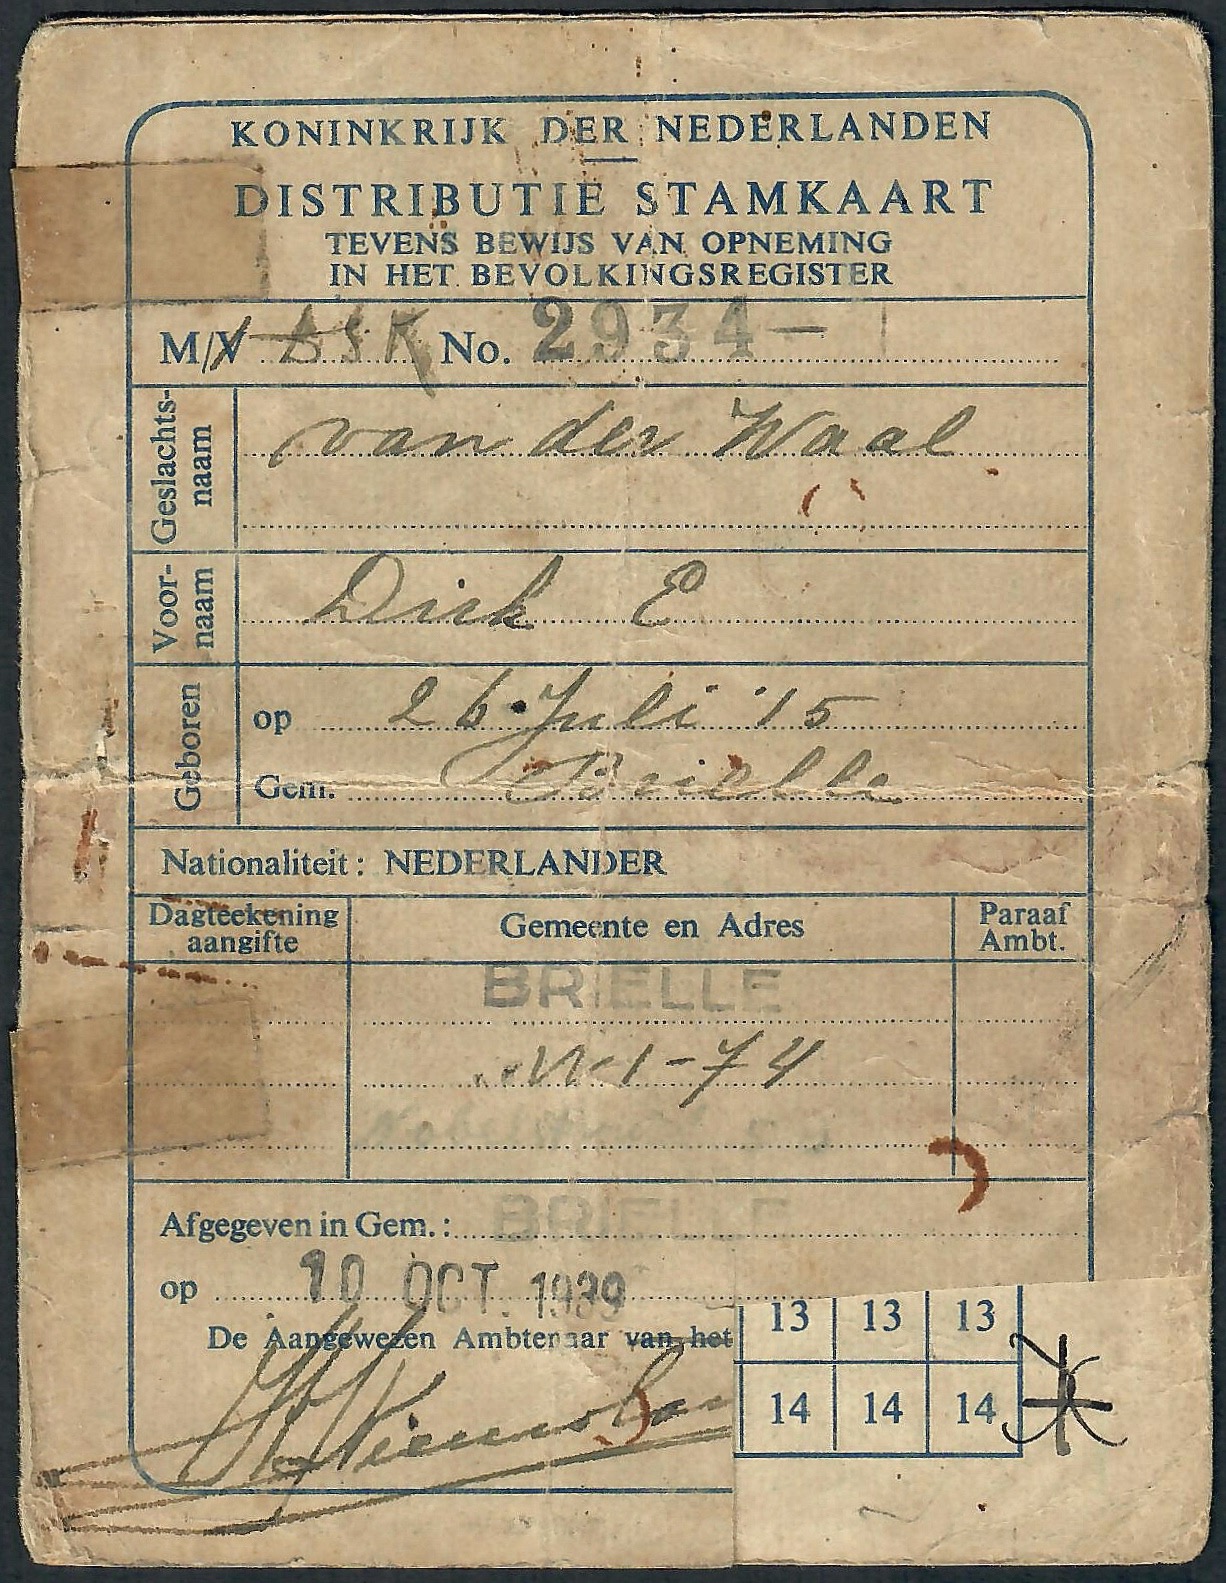 KONINKRIJK DER NEDERLANDEN
DISTRIBUTIE STAMKAART
TEVENS BEWIJS VAN OPNEMING
IN HET BEVOLKINGSREGISTER
M/V No. 2934-
Geslachts-
naam
van der Waal
Voor-
naam
Dirk E
Geboren
op 26 Juli '15
Gem. Brielle
Nationaliteit: NEDERLANDER
Dagteekening
aangifte
Gemeente en Adres
Paraaf
Ambt.
BRIELLE
W 1-74
Afgegeven in Gem.: BRIELLE
op 10 OCT. 1939
De Aangewezen Ambtenaar van het
13 13 13
14 14 14